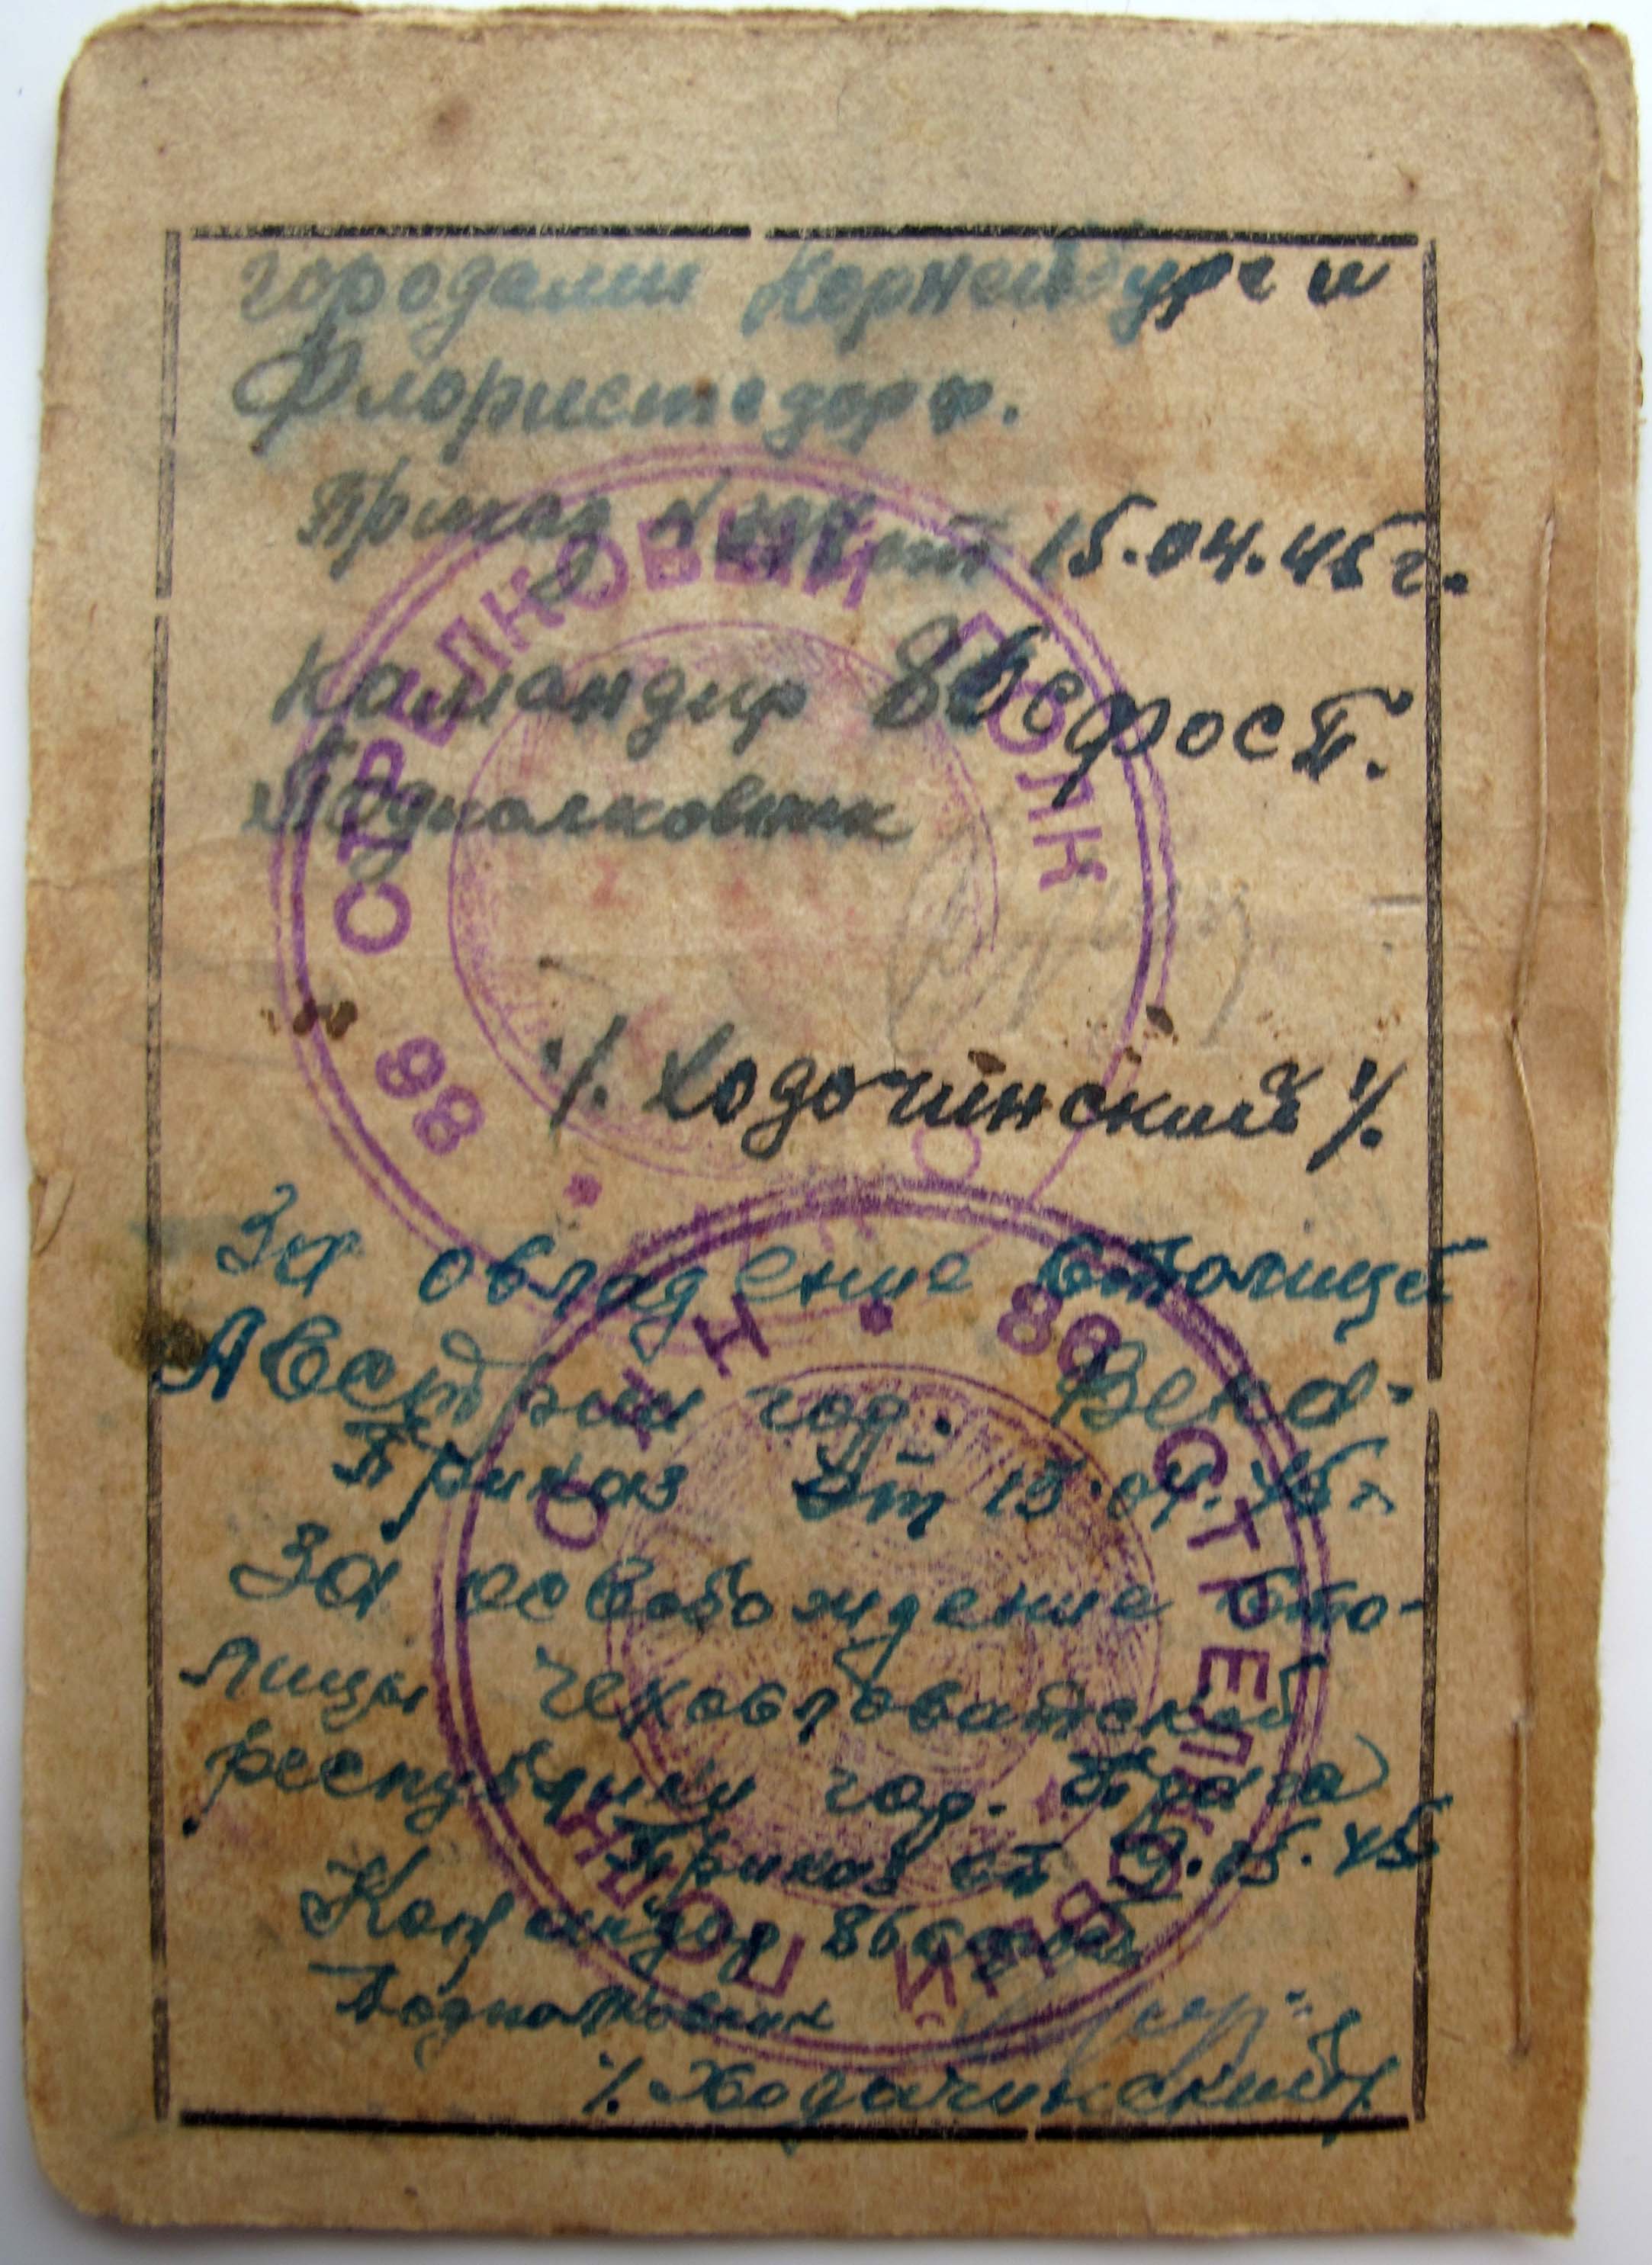 городами Корнейбург и
Флористсдорф.
Приказ от 15.04.45 г.
Командир 86
Подполковник
/. Ходочинский /.
За овладение столицей
Австрии год. Вена.
Приказ от 13.04.45г
За освобождение сто-
лицы Чехословатской
республики год. Прага
Приказ от 9.05.45
Командир 86
Подполковник
/. Ходочинский /.
86 СТРЕЛКОВЫЙ ПОЛК
86 СТРЕЛКОВЫЙ ПОЛК